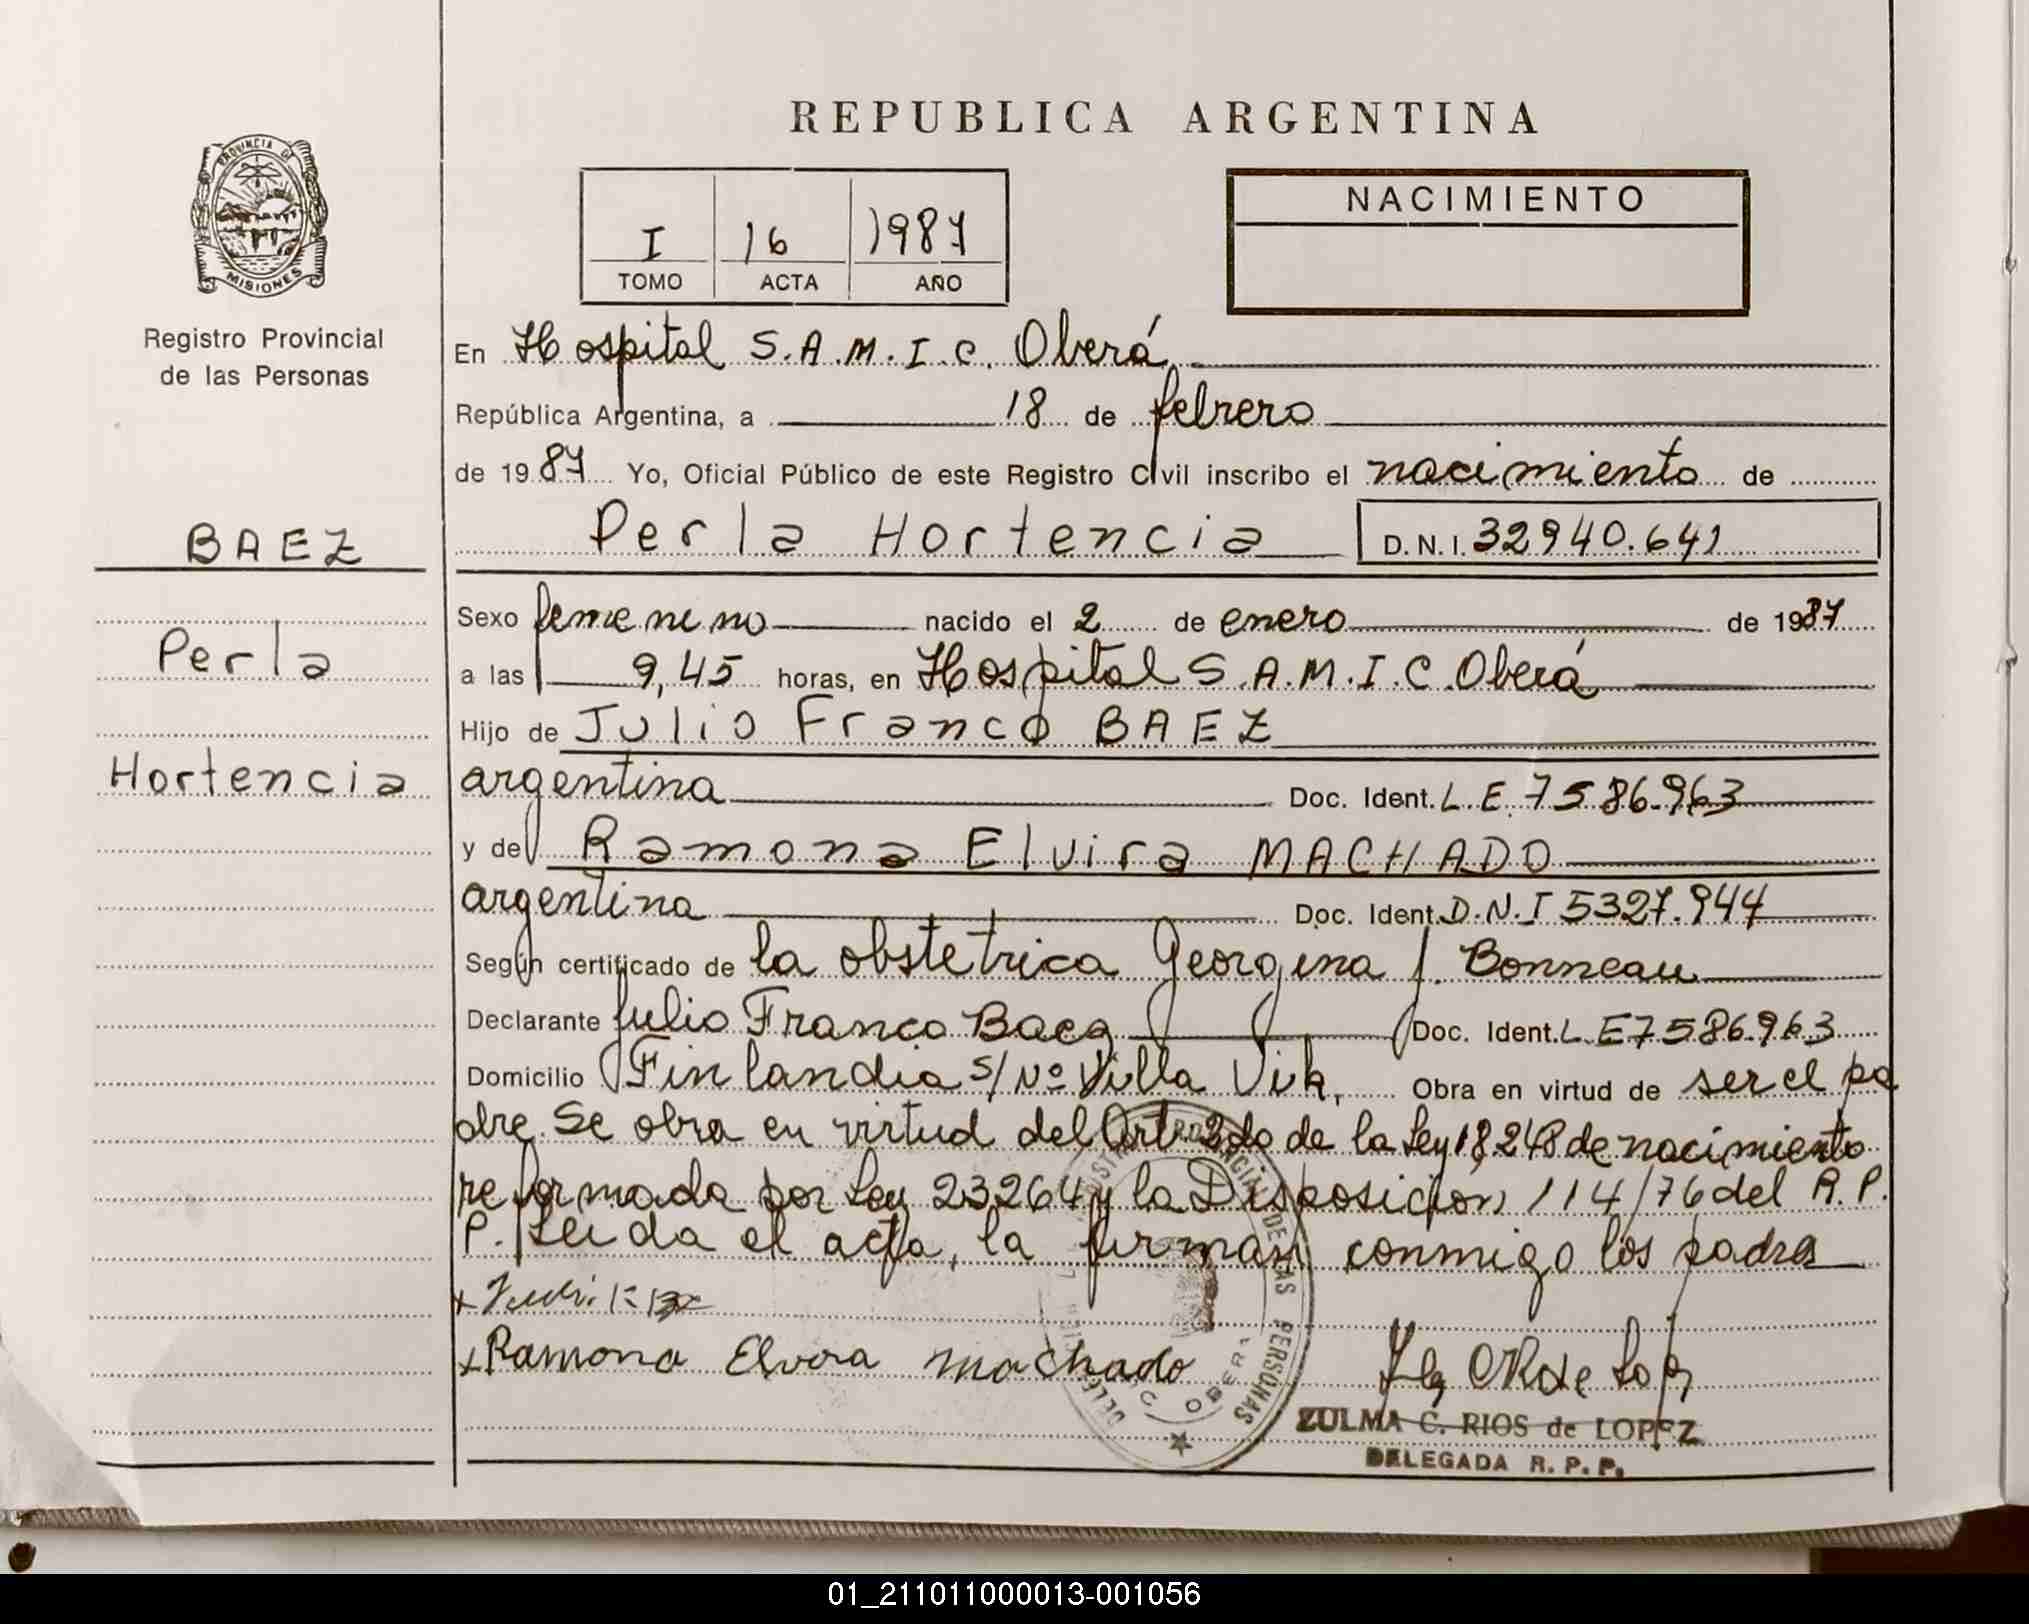 REPUBLICA ARGENTINA
PROVINCIA DE
MISIONES
Registro Provincial
de las Personas
I 16 1987
TOMO ACTA AÑO
NACIMIENTO
En Hospital S.A.M.I.C. Oberá
República Argentina, a 18 de febrero
de 1987 Yo, Oficial Público de este Registro Civil inscribo el nacimiento de
Perla Hortencia D.N.I. 32940.641
BAEZ
Perla
Hortencia
Sexo femenino nacido el 2 de enero de 1987
a las 9,45 horas, en Hospital S.A.M.I.C. Oberá
Hijo de Julio Franco BAEZ
argentina Doc. Ident. L.E. 7586.963
y de Ramona Elvira MACHADO
argentina Doc. Ident. D.N.I 5327.944
Según certificado de la obstetrica Georgina J. Bonneau
Declarante Julio Franco Baez Doc. Ident. L.E 7586.963
Domicilio Finlandia s/Nº Villa Obra en virtud de ser el pa
dre. Se obra en virtud del Art. 2do de la Ley 18.248 de nacimiento
reformada por Ley 23264 y la Disposición 114/76 del R.P.
P. Leida el acta, la firman conmigo los padres
x
x Ramona Elvira Machado
ZULMA C. RIOS de LOPEZ
DELEGADA R. P. P.
01_211011000013-001056